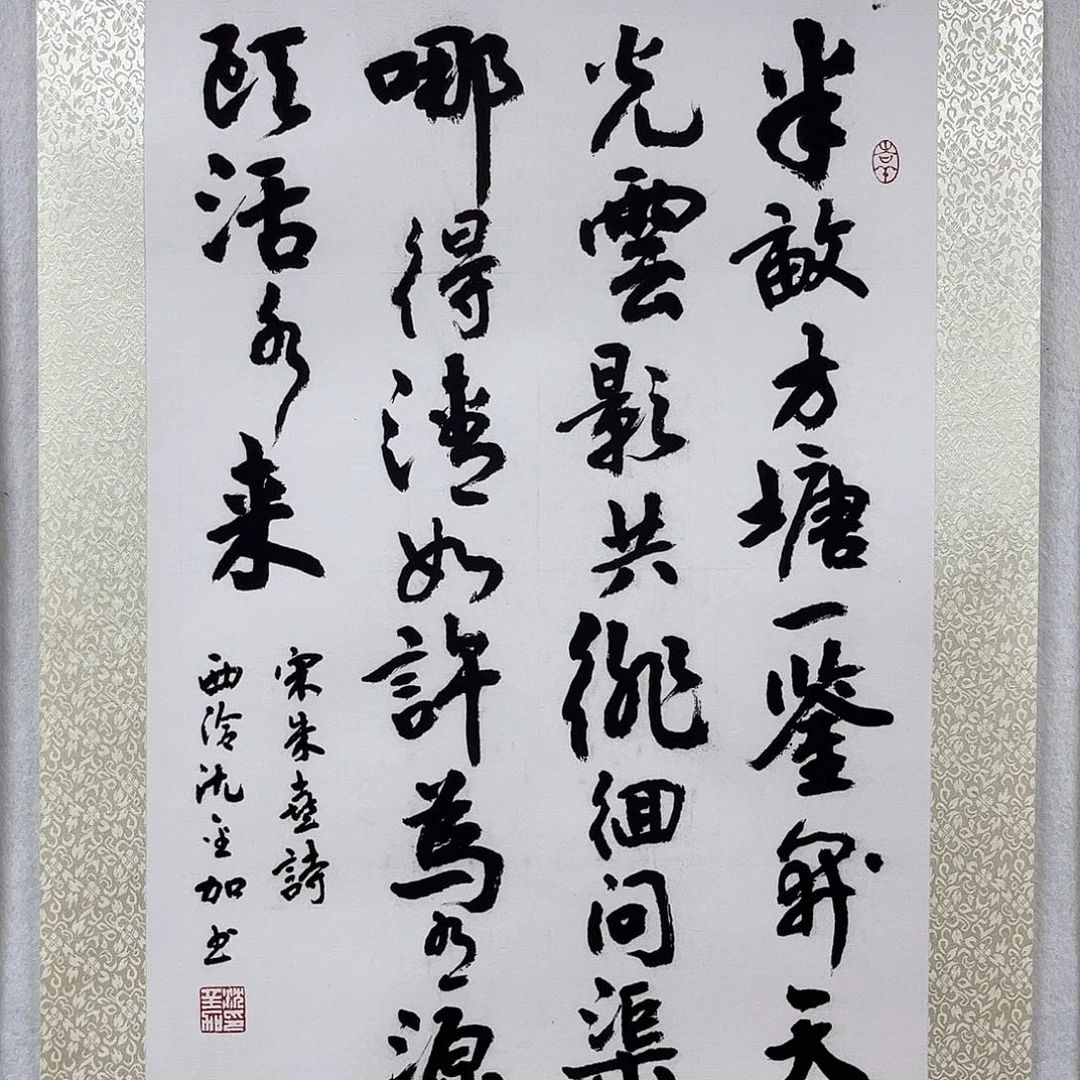 半畝方塘一鑒開天
光雲影共徘徊问渠
哪得清如許為有源
頭活水来
宋朱熹詩
西泠沈加书